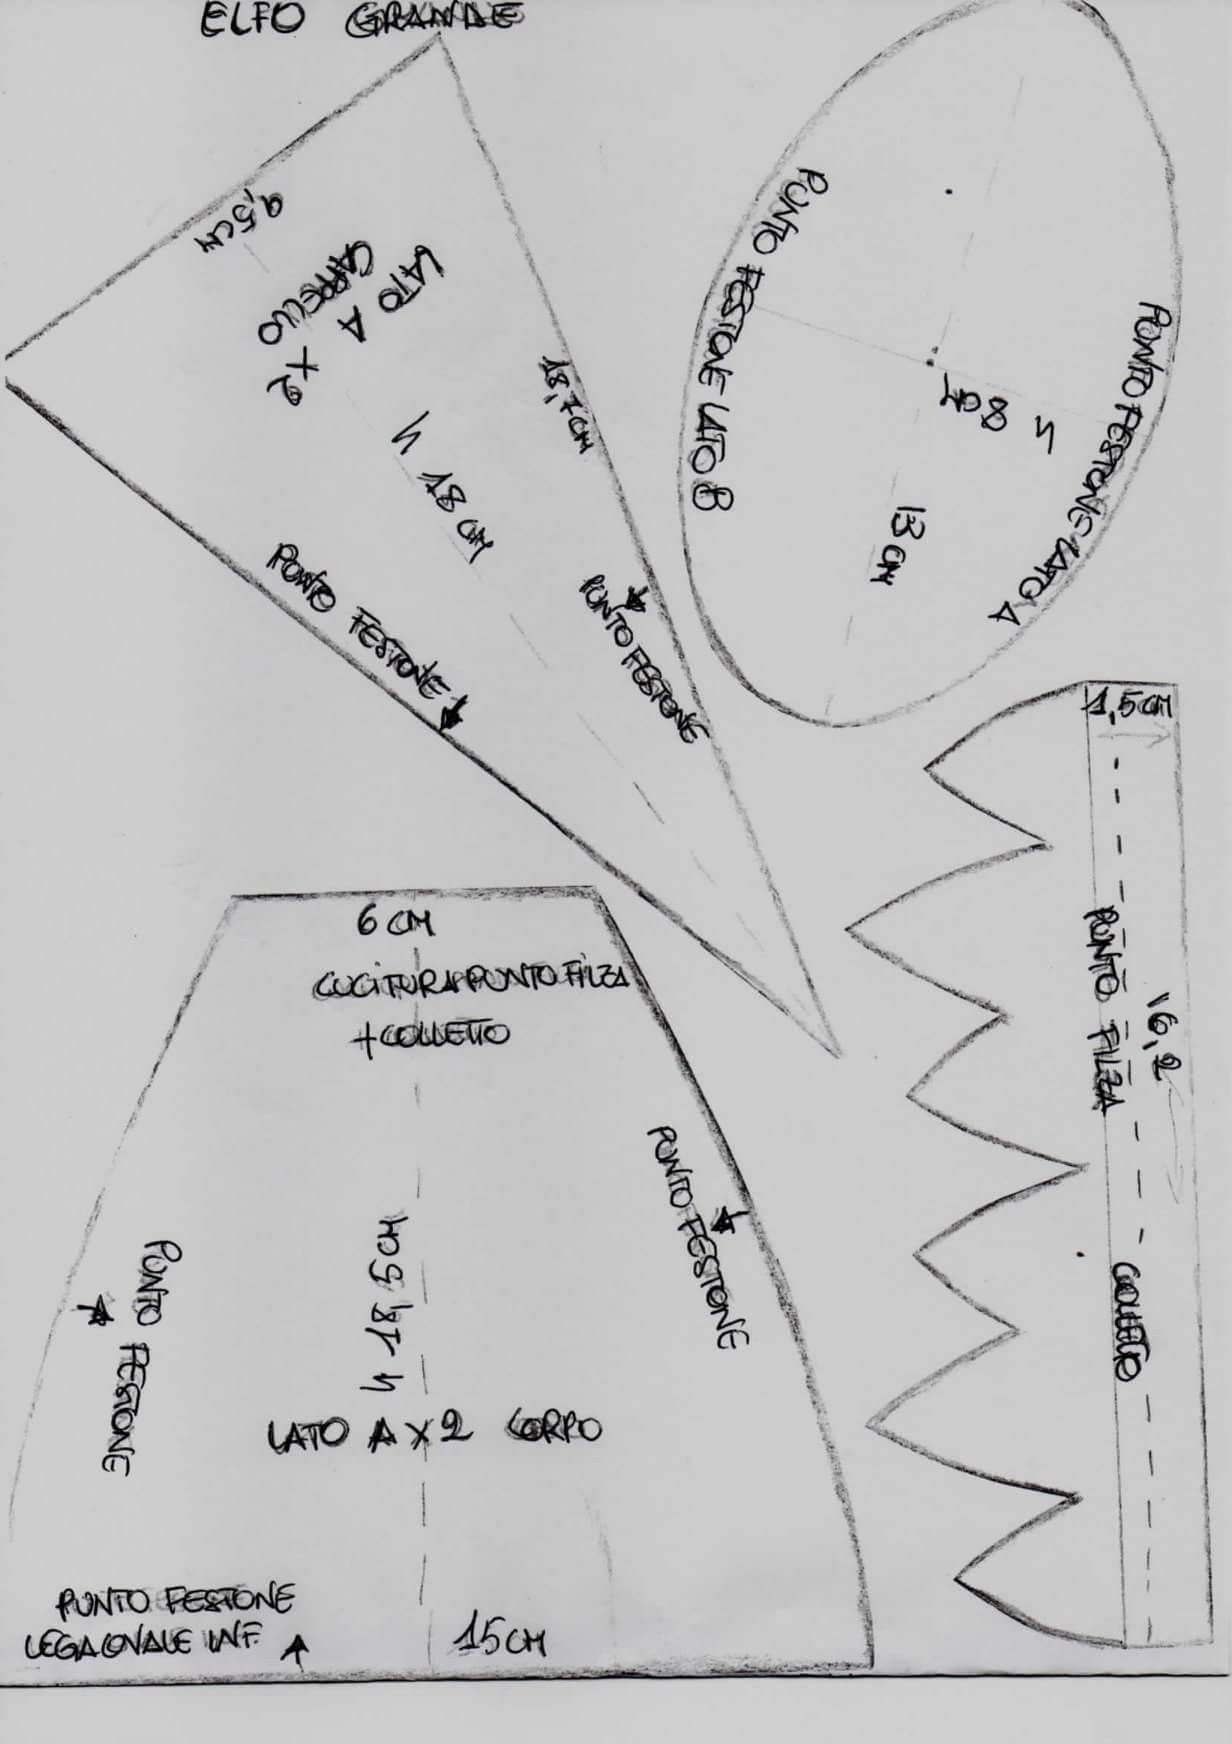 ELFO GRANDE
9,5CM
LATO
A
CAPPELLO
X 2
18,7CM
h 18 CM
PUNTO FESTONE
PUNTO FESTONE
PUNTO FESTONE LATO B
PUNTO FESTONE LATO A
h
13 CM
1,5CM
PUNTO FILZA
16,2
COLLETTO
6 CM
CUCITURA PUNTO FILZA
+ COLLETTO
PUNTO FESTONE
PUNTO FESTONE
h 18,5CM
LATO A X 2 CORPO
PUNTO FESTONE
INF.
15CM